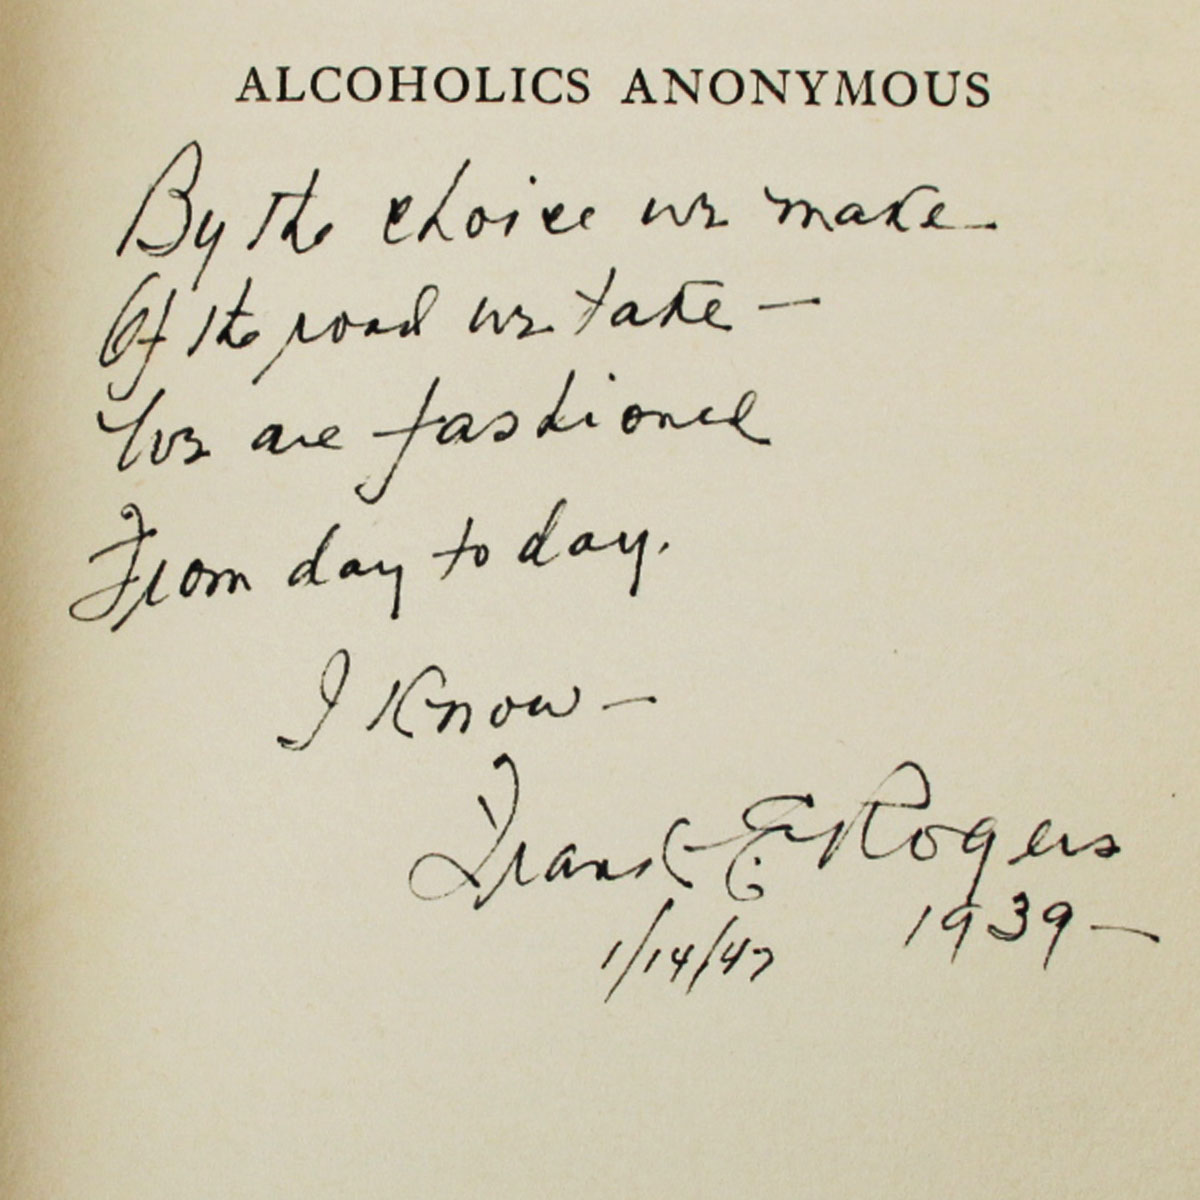 ALCOHOLICS ANONYMOUS
By the choice we make
Of the road we take —
We are fashioned
From day to day.
I Know —
Frank E. Rogers
1939 —
1/14/47